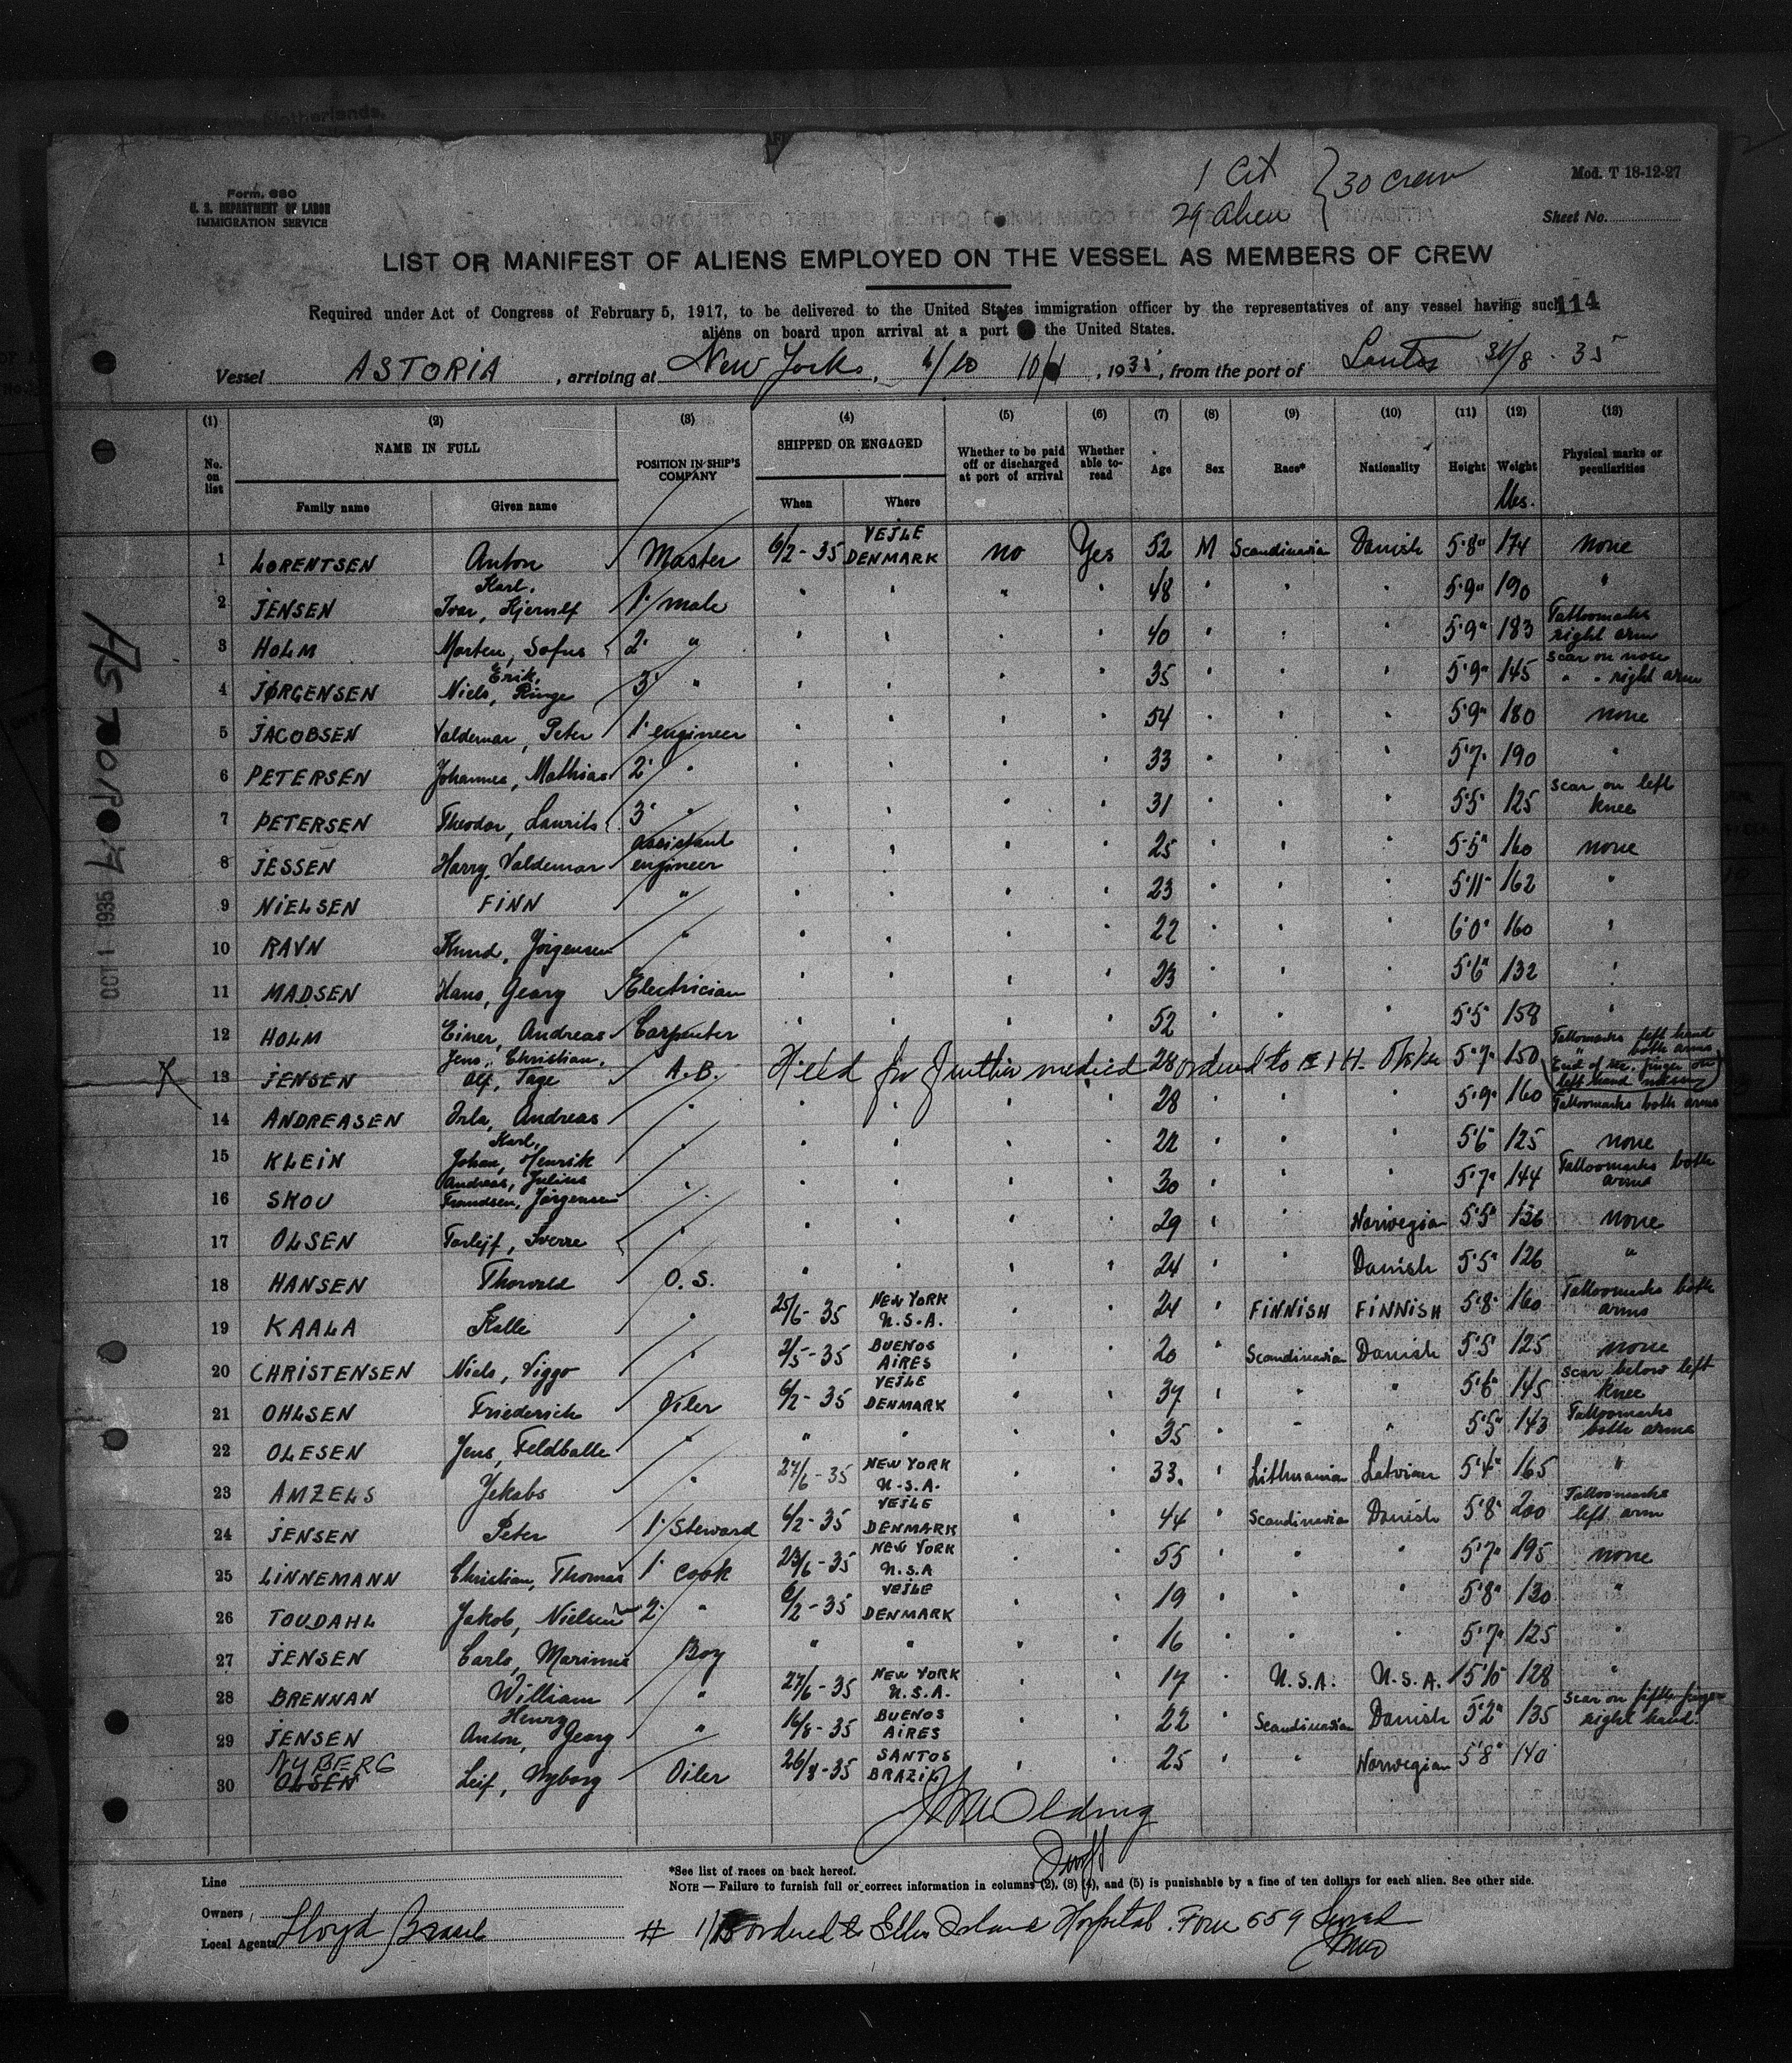 Form. 680
U. S. DEPARTMENT OF LABOR
IMMIGRATION SERVICE
1 Cit
29 Alien } 30 Crew
Mod. T 18-12-27
Sheet No.
LIST OR MANIFEST OF ALIENS EMPLOYED ON THE VESSEL AS MEMBERS OF CREW
Required under Act of Congress of February 5, 1917, to be delivered to the United States immigration officer by the representatives of any vessel having such 114
aliens on board upon arrival at a port the United States.
Vessel ASTORIA, arriving at New York, 1935, from the port of Santos 31/8 - 35
(1) (2) (3) (4) (5) (6) (7) (8) (9) (10) (11) (12) (13)
No. on list NAME IN FULL Family name Given name POSITION IN SHIP'S COMPANY SHIPPED OR ENGAGED When Where Whether to be paid off or discharged at port of arrival Whether able to read Age Sex Race* Nationality Height Weight lbs. Physical marks or peculiarities
1 LORENTSEN Anton Master 6/2-35 VEJLE DENMARK no Yes 52 M Scandinavia Danish 5'8" 174 none
2 JENSEN Karl, Ivar, Hjernlf 1' mate " " " " 48 " " " 5'9" 190 "
3 HOLM Morten, Sofus 2' " " " " " 40 " " " 5'9" 183 Tattoomarks right arm
4 JØRGENSEN Erik, Niels, Ringe 3' " " " " " 35 " " " 5'9" 145 scar on nose " " right arm
5 JACOBSEN Valdemar, Peter 1' engineer " " " " 54 " " " 5'9" 180 none
6 PETERSEN Johannes, Mathias 2' " " " " " 33 " " " 5'7" 190 "
7 PETERSEN Theodor, Laurits 3' " " " " " 31 " " " 5'5" 125 scar on left knee
8 JESSEN Harry, Valdemar assistant engineer " " " " 25 " " " 5'5" 160 none
9 NIELSEN FINN " " " " " 23 " " " 5'11" 162 "
10 RAVN Knud, Jörgensen " " " " " 22 " " " 6'0" 160 "
11 MADSEN Hans, Georg Electrician " " 23 " " " 5'6" 132 "
12 HOLM Einer, Andreas Carpenter " " " " 52 " " " 5'5" 158 Tattomarks left hand " both arms
13 JENSEN Jens, Christian, Alf, Tage A.B. Held for further medical 28 ordered to E I H. 5'7" 150 (End of finger on left hand missing)
14 ANDREASEN Orla, Andreas " " " " " 28 " " " 5'9" 160 Tattoomarks both arms
15 KLEIN Karl, Johan, Henrik " " " " " 22 " " " 5'6" 125 none
16 SKOU Andreas, Julius Frandsen, Jørgensen " " " " " 30 " " " 5'7" 144 Tattoomarks both arms
17 OLSEN Torlejf, Sverre " " " " " 29 " " Norwegian 5'5" 136 none
18 HANSEN Thorvald O.S. " " " " 24 " " Danish 5'5" 126 "
19 KAALA Kalle " 25/6-35 NEW YORK U.S.A. " " 24 " FINNISH FINNISH 5'8" 160 Tattoomarks both arms
20 CHRISTENSEN Niels, Viggo " 2/5-35 BUENOS AIRES " " 20 " Scandinavian Danish 5'5" 125 none
21 OHLSEN Friederich Oiler 6/2-35 VEJLE DENMARK " " 37 " " " 5'6" 145 scar below left knee
22 OLESEN Jens, Feldballe " " " " " 35 " " " 5'5" 143 Tattoomarks both arms
23 AMZELS Jekabs " 27/6-35 NEW YORK U.S.A. " " 33. " Lithuania Latvian 5'4" 165 "
24 JENSEN Peter 1' Steward 6/2-35 VEJLE DENMARK " " 44 " Scandinavia Danish 5'8" 200 Tattoomarks left arm
25 LINNEMANN Christian, Thomas 1' cook 23/6-35 NEW YORK U.S.A " " 55 " " " 5'7" 195 none
26 TOUDAHL Jakob, Nielsen 2' " 6/2-35 VEJLE DENMARK " " 19 " " " 5'8" 130 "
27 JENSEN Carlo, Marinus Boy " " " " 16 " " " 5'7" 125 "
28 BRENNAN William " 27/6-35 NEW YORK U.S.A. " " 17 " U.S.A. U.S.A. 5'10" 128 "
29 JENSEN Henry Anton, Georg " 16/8-35 BUENOS AIRES " " 22 " Scandinavian Danish 5'2" 135 scar on fifth finger right hand.
30 NYBERG OLSEN Leif, Nyborg Oiler 26/8-35 SANTOS BRAZIL " " 25 " " Norwegian 5'8" 140
ASTORIA
OCT 1 1935
X
Line
*See list of races on back hereof.
NOTE — Failure to furnish full or correct information in columns (2), (3) (4), and (5) is punishable by a fine of ten dollars for each alien. See other side.
Owners
Local Agents Lloyd Brasil
# 1/13 ordered to Ellis Island Hospital. Form 659 Served